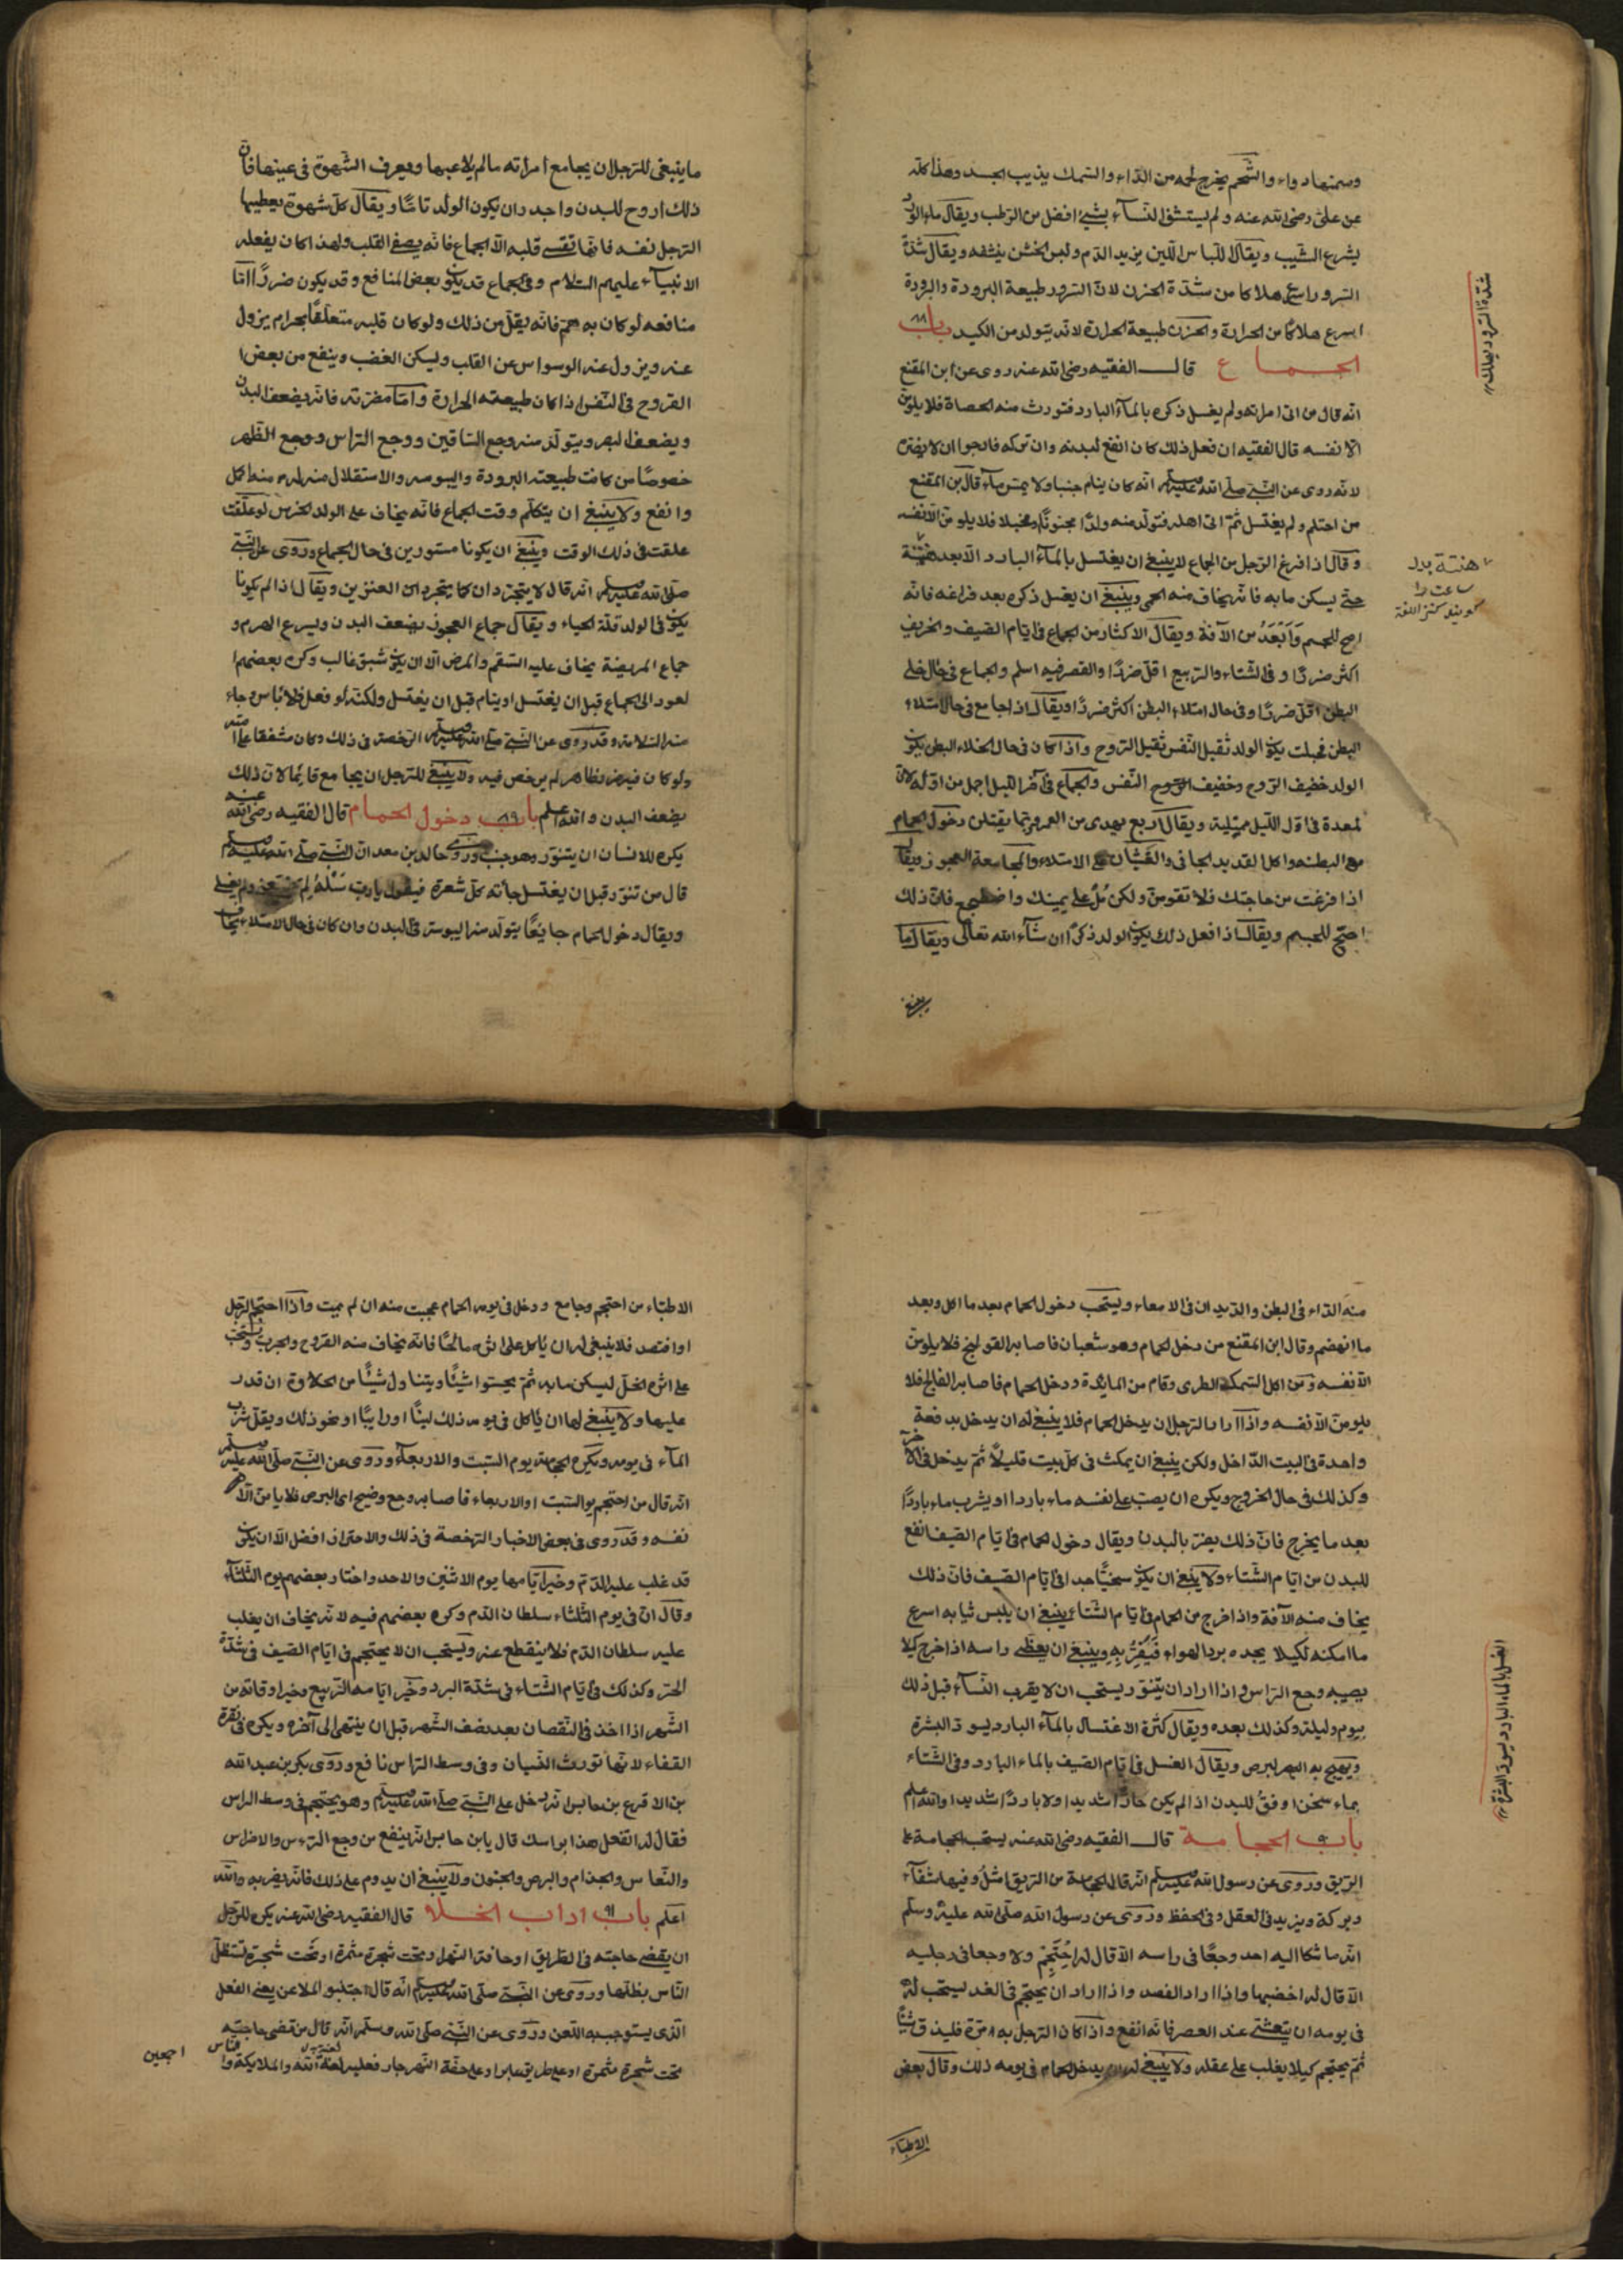 وسمنها دواء والشحم يخرج مثله من الداء والسمك يذيب الجسد وهذا كله
عن علىّ رضى الله عنه ولم يستشف النسآء بشئ افضل من الرطب ويقال ماء الورد
يشرع الشيب ويقال اللباس اللين يزيد الدم ولبس الخشن ينشفه ويقال شدة
السرور اسرع هلاكا من شدة الحزن لان السرور طبيعة البرودة والبرودة
اسرع هلاكا من الحرارة والحزن طبيعة الحرارة لانه يتولد من الكبد باب ٨٨
الجماع قال الفقيه رضى الله عنه روى عن ابن المقنع
انه قال من اتى امراته ولم يغسل ذكره بالمآء البارد فتورث منه الحصاة فلا يلومنّ
الا نفسه قال الفقيه ان فعل ذلك كان انفع لبدنه وان تركه فارجوا ان لا يضره
لانه روى عن النبى صلى الله عليه وسلم انه كان ينام جنبا ولا يمس مآء قال ابن المقنع
من احتلم ولم يغتسل ثم اتى اهله فتولد منه ولدا مجنونا او مخبلا فلا يلومن الا نفسه
وقال اذا فرغ الرجل من الجماع لا ينبغى ان يغتسل بالمآء البارد الا بعد هنتة
حتى يسكن ما به فانه يخاف منه الحمى وينبغى ان يغسل ذكره بعد فراغه فانه
اصح للجسم وَاَبْعَدُ من الآفة ويقال الاكثار من الجماع فى ايام الصيف والخريف
اكثر ضررا وفى الشتاء والربيع اقل ضررا والقصر فيه اسلم والجماع فى حال خلى
البطن اقل ضررا وفى حال امتلاء البطن اكثر ضررا ويقال اذا جامع فى حال امتلاء
البطن فحبلت يكون الولد ثقيل النفس ثقيل الروح واذا كان فى حال الخلاء البطن يكون
الولد خفيف الروح وخفيف النفس والجماع فى آخر الليل اجمل من اوله لان
المعدة فى اول الليل ممتلية ويقال اربع يهدى من العمر وربما يقتلن دخول الحمام
مع البطنه واكل القديد الجافى والغشيان على الامتلاء والمجامعة العجوز ويقال
اذا فرغت من حاجتك فلا تقومن ولكن مُلْ على يمينك واضطجع فان ذلك
اصحّ للجسم ويقال اذا فعل ذلك يكون الولد ذكرا ان شآء الله تعالى ويقال ايما
شدة السرور يهلك
هنتة بدل
ساعت
ما ينبغى للرجل ان يجامع امراته ما لم يلاعبها ويعرف الشهوة فى عينها فان
ذلك اروح للبدن واجدر ان يكون الولد تاما ويقال كل شهوة يعطيها
الرجل نفسه فانها تقسى قلبه الا الجماع فانه يصفى القلب ولهذا كان يفعله
الانبيآء عليهم السلام وفى الجماع قد يكون بعض المنافع وقد يكون ضررا اما
منافعه لو كان به همّ فانه يقلّ من ذلك ولو كان قلبه متعلقا بحرام يزول
عنه ويزول عنه الوسواس عن القلب وليكن الغضب وينفع من بعض
القروح فى النفس اذا كان طبيعته الحرارة واما مضرته فانه يضعف البدن
ويضعف البصر ويتولد منه وجع الساقين ووجع الراس ووجع الظهر
خصوصا من كانت طبيعته البرودة واليبوسه والاستقلال منه
وانفع ولا ينبغى ان يتكلم وقت الجماع فانه يخاف على الولد الخرس لو علقت
علقت فى ذلك الوقت وينبغى ان يكونا مستورين فى حال الجماع وروى عن النبى
صلى الله عليه وسلم انه قال لا يتجردان كما يتجردان العنزين ويقال اذا لم يكونا
يكون فى الولد قلة الحياء ويقال جماع العجوز يضعف البدن ويسرع الهرم و
جماع المريضة يخاف عليه السقم والمرض الا ان يكون شبق غالب وكره بعضهم
لعود الى الجماع قبل ان يغتسل او ينام قبل ان يغتسل ولكنه لو فعل فلا باس وجاء
منه السلامة وقد روى عن النبى صلى الله عليه وسلم الرخصة فى ذلك وكان مشفقا على امته
ولو كان فيه ضرر ظاهر لم يرخص فيه ولا ينبغى للرجل ان يجامع قايما لان ذلك
يضعف البدن والله اعلم باب ٨٩ دخول الحمام قال الفقيه رضى الله عنه
يكره للانسان ان يتنور وهو جنب وروى خالد بن معدان النبى صلى الله عليه وسلم
قال من تنور قبل ان يغتسل جاءته كل شعرة فيقول يا رب سَلْهُ لِمَ
ويقال دخول الحمام جايعا يتولد منه اليبوسة فى البدن وان كان فى حال الامتلاء يخاف
منه الداء فى البطن والديدان فى الامعاء ويستحب دخول الحمام بعد ما اكل وبعد
ما انهضم وقال ابن المقنع من دخل الحمام وهو شعبان فاصابه القولنج فلا يلومن
الا نفسه ومن اكل السمك الطرى وقام من المايدة ودخل الحمام فاصابه الفالج فلا
يلومن الا نفسه واذا اراد الرجل ان يدخل الحمام فلا ينبغى له ان يدخل بدفعة
واحدة فى البيت الداخل ولكن ينبغى ان يمكث فى كل بيت قليلا ثم يدخل فى الآخر
وكذلك فى حال الخروج ويكره ان يصب على نفسه ماء باردا او يشرب ماء باردا
بعد ما يخرج فان ذلك يضر بالبدن ويقال دخول الحمام فى ايام الصيف انفع
للبدن من ايام الشتاء ولا ينبغى ان يكون سخينا جدا فى ايام الصيف فان ذلك
يخاف منه الآفة واذا خرج من الحمام فى ايام الشتاء ينبغى ان يلبس ثيابه اسرع
ما امكنه لكيلا يجده برد الهواء فَيُضِرُّ بِهِ وينبغى ان يغطى راسه اذا خرج كيلا
يصيبه وجع الراس واذا اراد ان يتنور يستحب ان لا يقرب النسآء قبل ذلك
بيوم وليلة وكذلك بعده ويقال كثرة الاغتسال بالمآء البارد يسود البشرة
ويهيج به البرص ويقال الغسل فى ايام الصيف بالماء البارد وفى الشتاء
بماء سخن اوفق للبدن اذا لم يكن حارا شديدا ولا باردا شديدا والله اعلم
باب ٩٠ الحجامة قال الفقيه رضى الله عنه يستحب الحجامة على
الريق وروى عن رسول الله عليه وسلم انه قال الحجامة من الريق امثلُ وفيها شفآء
وبركة ويزيد فى العقل وفى الحفظ وروى عن رسول الله صلى الله عليه وسلم
انه ما شكا اليه احد وجعا فى راسه الا قال له اِحْتَجِمْ ولا وجعا فى رجليه
الا قال له اخضبها واذا اراد الفصد واذا اراد ان يحتجم فى الغد يستحب له
فى يومه ان يتعشى عند العصر فانه انفع واذا كان الرجل به مرة فليذق شيئا
ثم يحتجم كيلا يغلب على عقله ولا ينبغى له ان يدخل الحمام فى يومه ذلك وقال بعض
الاطباء
الغسل بالماء البارد يسود البشرة
الاطباء من احتجم وجامع ودخل فى يومه الحمام عجبت منه ان لم يميت واذا احتجم الرجل
او افتصد فلا ينبغى له ان ياكل على اثره مالحا فانه يخاف منه القروح والجرب ويستحب
على اثره الخل ليسكن ما به ثم يحتسوا شيئا ويتناول شيئا من الحلاوة ان قدر
عليها ولا ينبغى لهما ان ياكل فى يومه ذلك لبنا او رايبا او نحو ذلك ويقل شرب
المآء فى يومه ويكره الحجامة يوم السبت والاربعآء وروى عن النبى صلى الله عليه وسلم
انه قال من احتجم يوم السبت او الاربعاء فاصابه وجع وضح اى البرص فلا يلومن الا
نفسه وقد روى فى بعض الاخبار الرخصة فى ذلك والاحتراز افضل الا ان يكون
قد غلب عليه الدم وخير ايامها يوم الاثنين والاحد واختار بعضهم يوم الثلثاء
وقال ان فى يوم الثلثاء سلطان الدم وكره بعضهم فيه لانه يخاف ان يغلب
عليه سلطان الدم فلا ينقطع عنه ويستحب ان لا يحتجم فى ايام الصيف فى شدة
الحر وكذلك فى ايام الشتاء فى شدة البرد وخير ايامه الربيع وخير اوقاته من
الشهر اذا اخذ فى النقصان بعد نصف الشهر قبل ان ينتهى الى آخره ويكره فى نقرة
القفاء لانها تورث النسيان وفى وسط الراس نافع وروى بكر بن عبد الله
بن الاقرع بن حابس انه دخل على النبى صلى الله عليه وسلم وهو يحتجم فى وسط الراس
فقال له اتفعل هذا براسك قال يا بن حابس انه ينفع من وجع الروس والاضراس
والنعاس والجذام والبرص والجنون ولا ينبغى ان يدوم على ذلك فانه يضر به والله
اعلم باب ٩١ اداب الخلاء قال الفقيه رضى الله عنه يكره للرجل
ان يقضى حاجته فى الطريق او حافة النهر او تحت شجرة مثمرة او تحت شجرة تستظل
الناس بظلها وروى عن النبى صلى الله عليه وسلم انه قال اجتنبو الملاعن يعنى الفعل
الذى يستوجب به اللعن وروى عن النبى صلى الله وسلم انه قال من قضى حاجته
تحت شجرة مثمرة او على طريق عابر او على حفة النهر جار فعليه لعنة الله والملايكة والناس
اجمعين